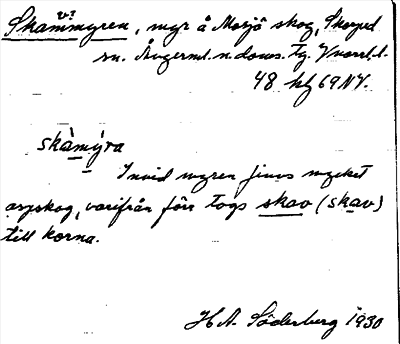 v?
Skammyren, myr å Mosjö skog, Skorped
sn. Ångerml. n. doms. Tg.
48 hfj 69 NV.
skàmýra
Invid myren finns mycket
aspskog, varifrån förr togs skav (skav)
till korna.
H A. Söderberg 1930